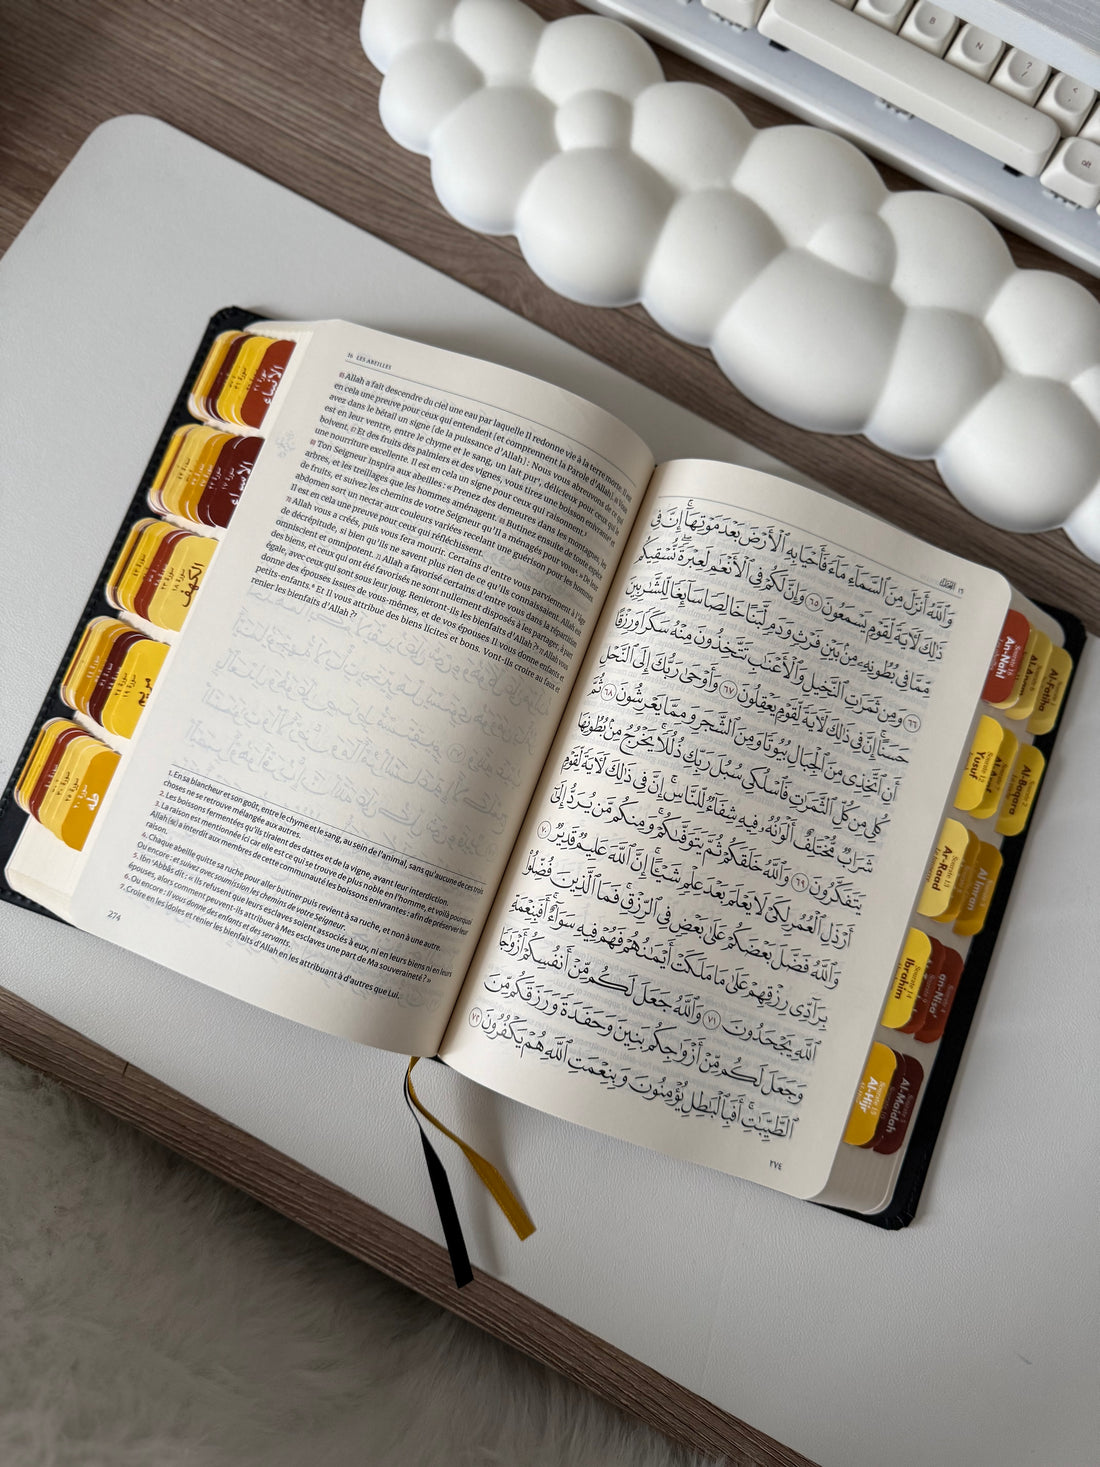 16 LES ABEILLES
65 Allah a fait descendu du ciel une eau par laquelle Il redonne vie à la terre morte. Il est
en cela une preuve pour ceux qui entendent (et comprennent la Parole d’Allah). 66 Vous
avez dans le bétail un signe (de la puissance d’Allah) : Nous vous abreuvons de ce qui
est en leur ventre, entre le chyme et le sang, un lait pur¹, délicieux pour ceux qui le
boivent. 67 Et des fruits des palmiers et des vignes, vous tirez une boisson enivrante² et
une nourriture excellente. Il est en cela un signe pour ceux qui raisonnent.³
68 Ton Seigneur inspira aux abeilles : « Prenez des demeures dans les montagnes, les
arbres, et les treillages que les hommes aménagent. 69 Butinez ensuite de toute espèce
de fruits, et suivez les chemins de votre Seigneur qu’Il a ménagés pour vous.⁴ » De leur
abdomen sort un nectar aux couleurs variées recelant une guérison pour les hommes.
Il est en cela une preuve pour ceux qui réfléchissent.
70 Allah vous a créés, puis vous fera mourir. Certains d’entre vous parviennent à l’âge
de décrépitude, si bien qu’ils ne savent plus rien de ce qu’ils connaissaient. Allah est
omniscient et omnipotent. 71 Allah a favorisé certains d’entre vous dans la répartition
des biens, et ceux qui ont été favorisés ne sont nullement disposés à les partager, à part
égale, avec ceux qui sont sous leur joug. Renieront-ils les bienfaits d’Allah ?⁵ 72 Allah vous
donne des épouses issues de vous-mêmes, et de vos épouses Il vous donne enfants et
petits-enfants.⁶ Et Il vous attribue des biens licites et bons. Vont-ils croire au faux et
renier les bienfaits d’Allah ?⁷
1. En sa blancheur et son goût, entre le chyme et le sang, au sein de l’animal, sans qu’aucune de ces trois
choses ne se retrouve mélangée aux autres.
2. Les boissons fermentées qu’ils tiraient des dattes et de la vigne, avant leur interdiction.
3. La raison est mentionnée ici car elle est ce qui se trouve de plus noble en l’homme, et voilà pourquoi
Allah (ﷻ) a interdit aux membres de cette communauté les boissons enivrantes : afin de préserver leur
raison.
4. Chaque abeille quitte sa ruche pour aller butiner puis revient à sa ruche, et non à une autre.
Ou encore : et suivez avec soumission les chemins de votre Seigneur.
5. Ibn ‘Abbâs dit : « Ils refusent que leurs esclaves soient associés à eux, ni en leurs biens ni en leurs
épouses, alors comment peuvent-ils attribuer à Mes esclaves une part de Ma souveraineté ? »
6. Ou encore : Il vous donne des enfants et des servants.
7. Croire en les idoles et renier les bienfaits d’Allah en les attribuant à d’autres que Lui.
274
١٦ النحل
وَٱللَّهُ أَنزَلَ مِنَ ٱلسَّمَآءِ مَآءً فَأَحْيَا بِهِ ٱلْأَرْضَ بَعْدَ مَوْتِهَآ إِنَّ فِي
ذَٰلِكَ لَآيَةً لِّقَوْمٍ يَسْمَعُونَ ٦٥ وَإِنَّ لَكُمْ فِي ٱلْأَنْعَٰمِ لَعِبْرَةً نُّسْقِيكُم
مِّمَّا فِي بُطُونِهِۦ مِنۢ بَيْنِ فَرْثٍ وَدَمٍ لَّبَنًا خَالِصًا سَآئِغًا لِّلشَّٰرِبِينَ
٦٦ وَمِن ثَمَرَٰتِ ٱلنَّخِيلِ وَٱلْأَعْنَٰبِ تَتَّخِذُونَ مِنْهُ سَكَرًا وَرِزْقًا
حَسَنًا إِنَّ فِي ذَٰلِكَ لَآيَةً لِّقَوْمٍ يَعْقِلُونَ ٦٧ وَأَوْحَىٰ رَبُّكَ إِلَى ٱلنَّحْلِ
أَنِ ٱتَّخِذِي مِنَ ٱلْجِبَالِ بُيُوتًا وَمِنَ ٱلشَّجَرِ وَمِمَّا يَعْرِشُونَ ٦٨ ثُمَّ
كُلِي مِن كُلِّ ٱلثَّمَرَٰتِ فَٱسْلُكِي سُبُلَ رَبِّكِ ذُلُلًا يَخْرُجُ مِنۢ بُطُونِهَا
شَرَابٌ مُّخْتَلِفٌ أَلْوَٰنُهُۥ فِيهِ شِفَآءٌ لِّلنَّاسِ إِنَّ فِي ذَٰلِكَ لَآيَةً لِّقَوْمٍ
يَتَفَكَّرُونَ ٦٩ وَٱللَّهُ خَلَقَكُمْ ثُمَّ يَتَوَفَّىٰكُمْ وَمِنكُم مَّن يُرَدُّ إِلَىٰٓ
أَرْذَلِ ٱلْعُمُرِ لِكَيْ لَا يَعْلَمَ بَعْدَ عِلْمٍ شَيْـًٔا إِنَّ ٱللَّهَ عَلِيمٌ قَدِيرٌ ٧٠
وَٱللَّهُ فَضَّلَ بَعْضَكُمْ عَلَىٰ بَعْضٍ فِي ٱلرِّزْقِ فَمَا ٱلَّذِينَ فُضِّلُوا۟
بِرَآدِّي رِزْقِهِمْ عَلَىٰ مَا مَلَكَتْ أَيْمَٰنُهُمْ فَهُمْ فِيهِ سَوَآءٌ أَفَبِنِعْمَةِ
ٱللَّهِ يَجْحَدُونَ ٧١ وَٱللَّهُ جَعَلَ لَكُم مِّنْ أَنفُسِكُمْ أَزْوَٰجًا
وَجَعَلَ لَكُم مِّنْ أَزْوَٰجِكُم بَنِينَ وَحَفَدَةً وَرَزَقَكُم مِّنَ
ٱلطَّيِّبَٰتِ أَفَبِٱلْبَٰطِلِ يُؤْمِنُونَ وَبِنِعْمَتِ ٱللَّهِ هُمْ يَكْفُرُونَ ٧٢
٢٧٤
الأنبياء
الإسراء
الكهف
مريم
طه
Sourate 16
An-Nahl
Al-Fatiha
Sourate 12
Yusuf
Al-Baqara
Sourate 13
Ar-Raad
Al Imran
Sourate 14
Ibrahim
Sourate 4
an-Nisa'
Sourate 15
Al-Hijr
Sourate 5
Al-Maidah
B
N
?
/
<
,
alt